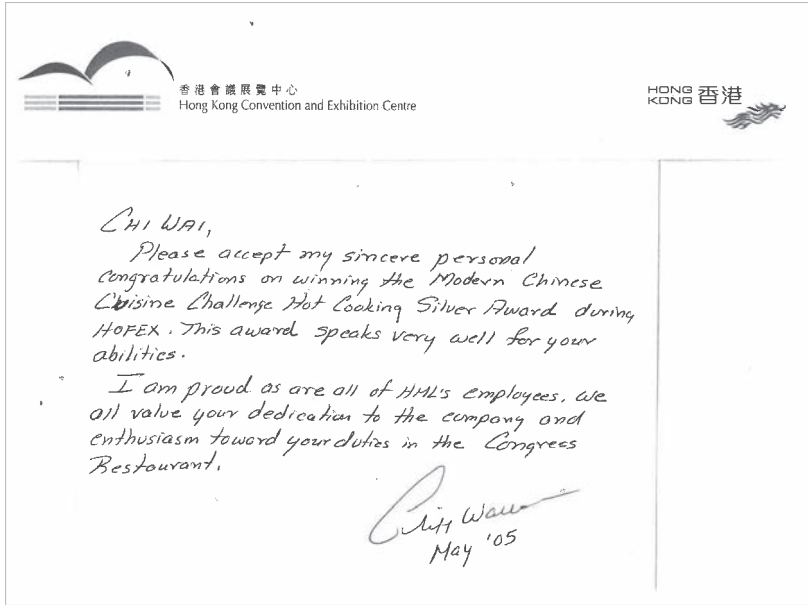 香港會議展覽中心
Hong Kong Convention and Exhibition Centre
HONG
KONG 香港
CHI WAI,
Please accept my sincere personal
congratulations on winning the Modern Chinese
Cuisine Challenge Hot Cooking Silver Award during
HOFEX. This award speaks very well for your
abilities.
I am proud as are all of HML's employees. We
all value your dedication to the company and
enthusiasm toward your duties in the Congress
Restaurant.
Cliff
May '05